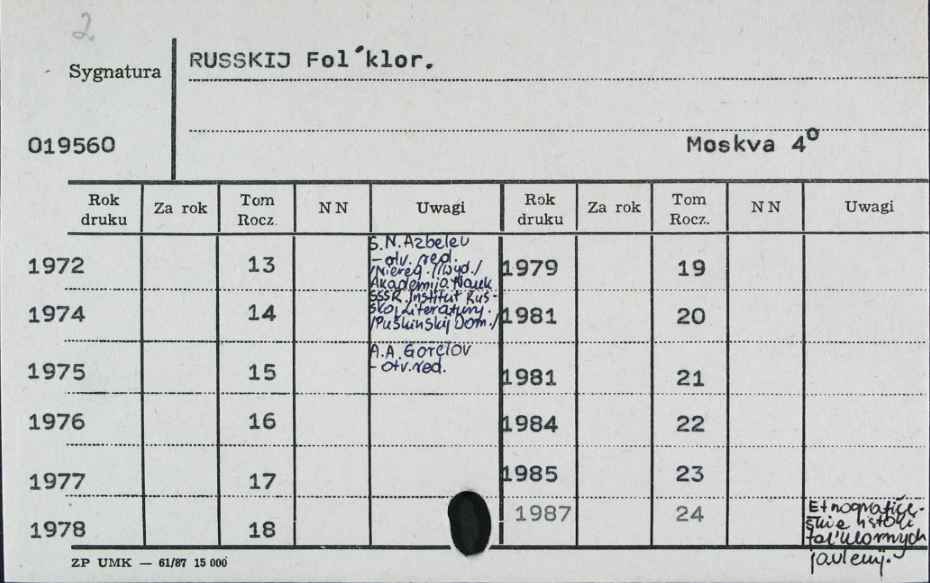 2
Sygnatura
RUSSKIJ Fol´klor.
019560
Moskva 4º
Rok druku Za rok Tom Rocz. NN Uwagi Rok druku Za rok Tom Rocz. NN Uwagi
1972 13 1979 19
S.N. Azbelev
- otv. red.
/Niereg./Wyd./
Akademija Nauk
SSSR. Institut Rus-
skoj Literatury.
/Puškinskij Dom./
1974 14 1981 20
1975 15 1981 21
A.A. Gorelov
- otv. red.
1976 16 1984 22
1977 17 1985 23
1978 18 1987 24
Etnografiče-
skie istoki
fol'klornych
javlenij.
ZP UMK — 61/87 15 000